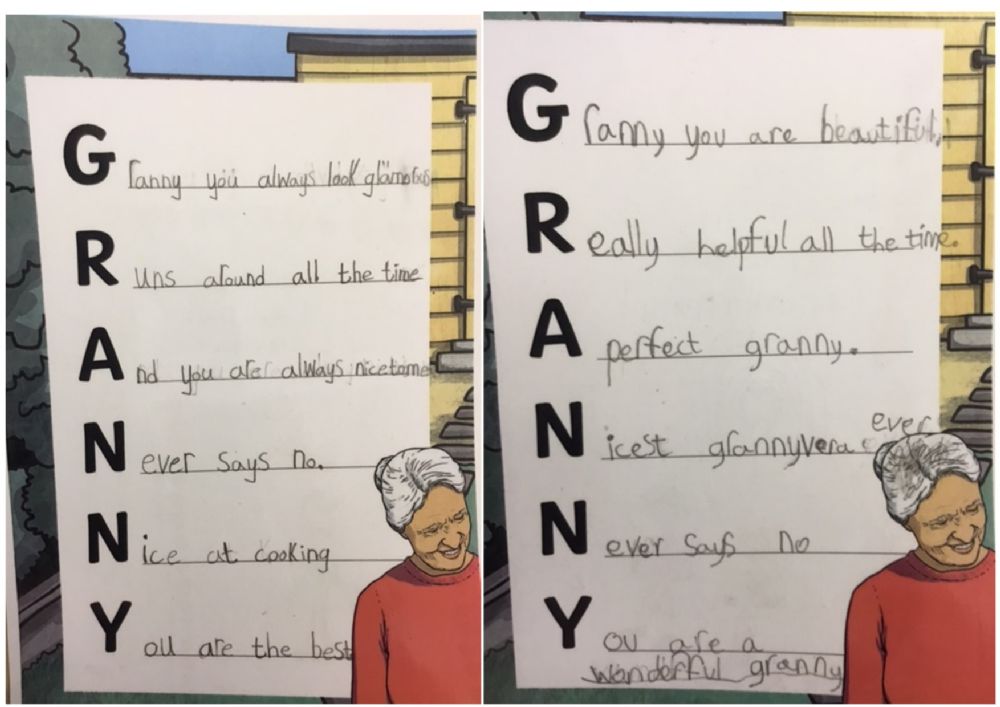 Granny you always look glamorous
Runs around all the time
And you are always nice to me
Never says no.
Nice at cooking
You are the best
Granny you are beautiful.
Really helpful all the time.
A perfect granny.
Nicest granny vera ever
Never says no
You are a
wonderful granny